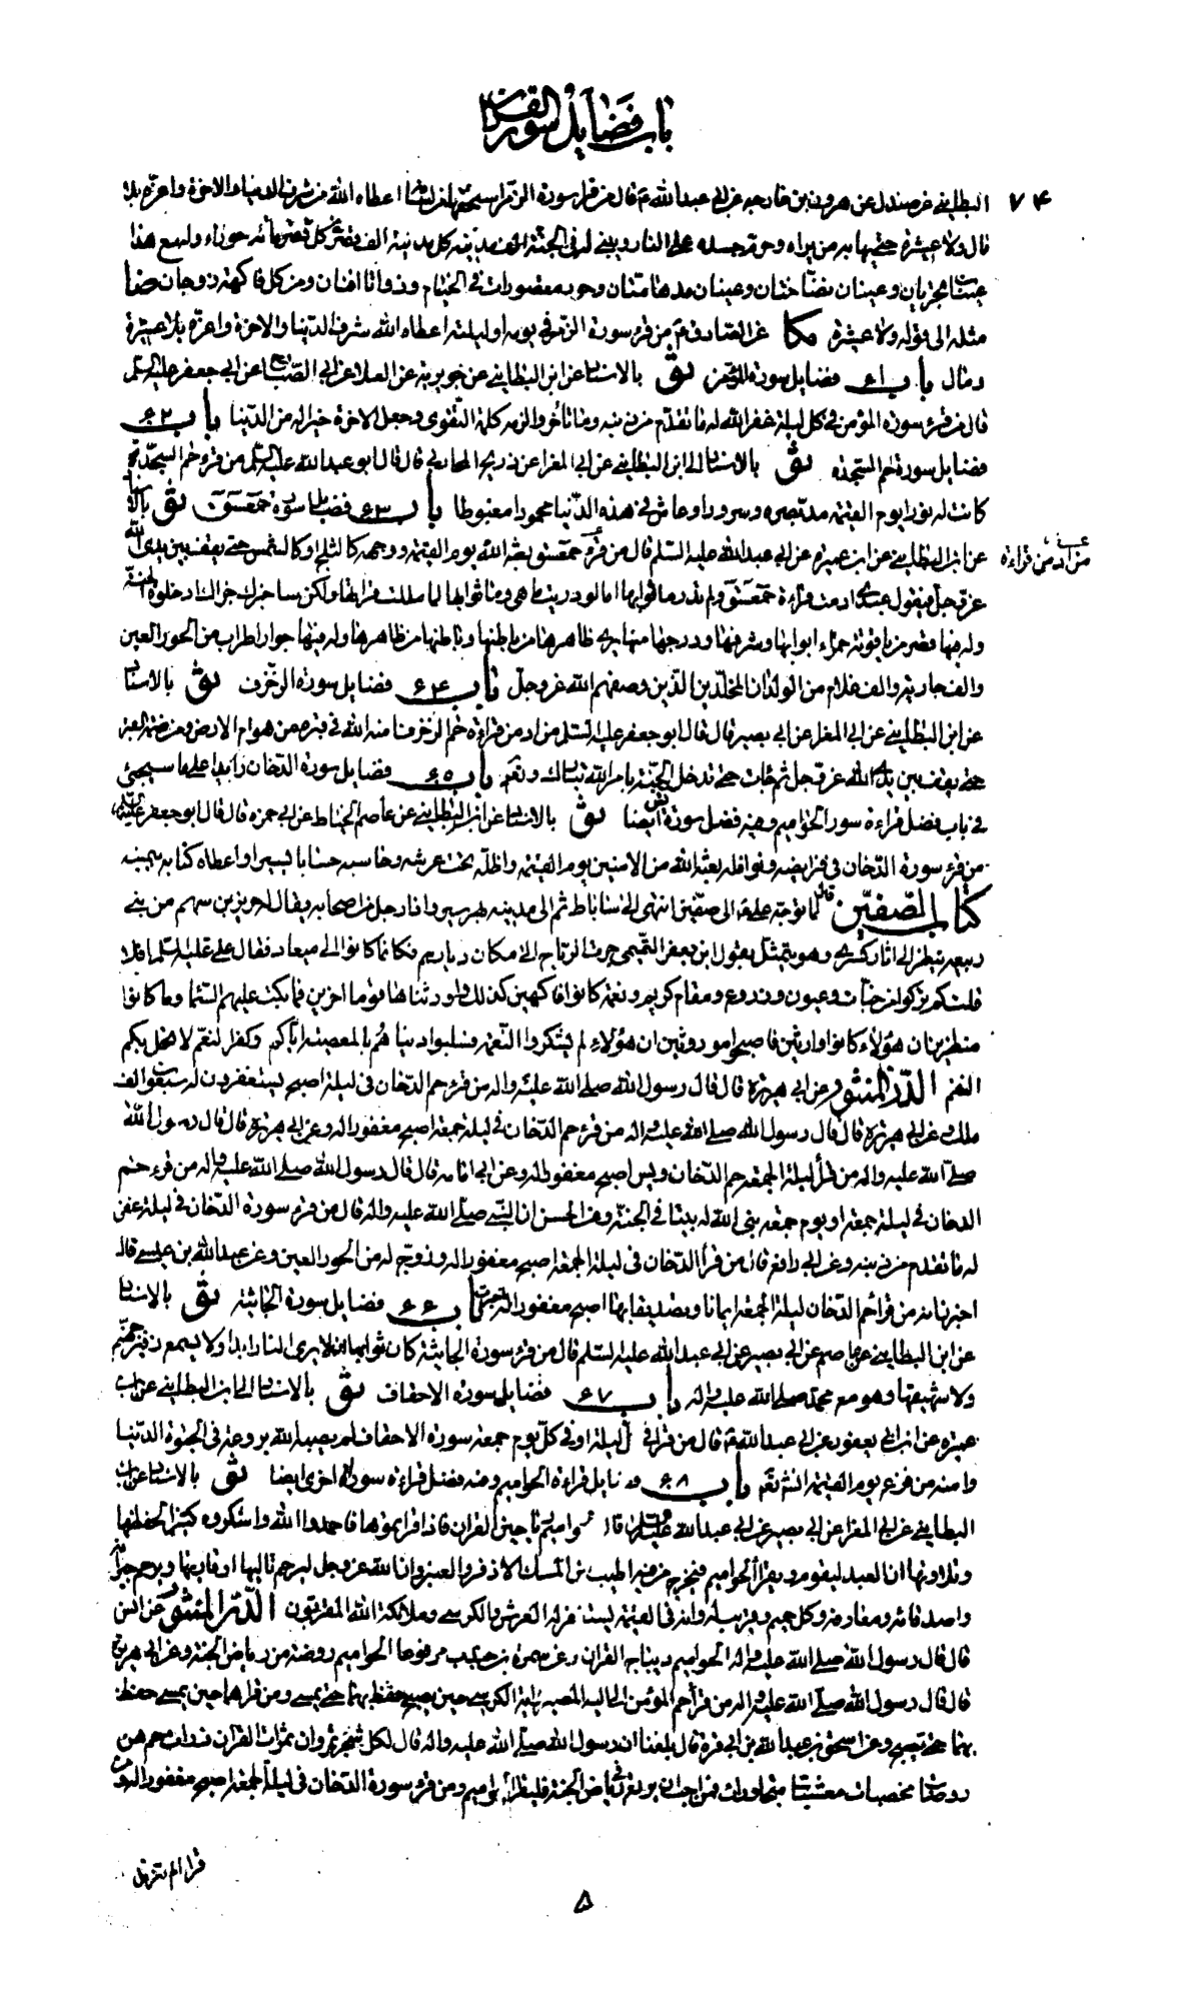 باب فضایل سور القران
۷۴
البطاینی عن صندل عن هرون بن خارجه عن ابی عبدالله ع قال من قرا سورة الزمر اعطاه الله من شرف الدنیا والاخرة واعزه بلا
مال ولا عشیرة حتی یهابه من یراه وحرم جسده علی النار ویبنی له فی الجنة الف مدینة کل مدینة الف قصر فی کل قصر مائه حوراء وله مع هذا
عینان تجریان وعینان نضاختان وعینان مدهامتان وحور مقصورات فی الخیام وذواتا افنان ومن کل فاکهة زوجان
مثله الی قوله ولا عشیرة مکا عن الصادق ع من قرء سورة الزمر فی یومه او لیلته اعطاه الله شرف الدنیا والاخرة واعزه بلا عشیرة
ومال باب ۶۱ فضایل سورة المؤمن ثق بالاسناد عن ابن البطاینی عن جویریه عن العلا عن ابی الصباح عن ابی جعفر علیه السلم
قال من قرء سورة المؤمن فی کل لیلة غفر الله له ما تقدم من ذنبه وما تأخر والزمه کلمة التقوی وجعل الاخرة خیرا له من الدنیا باب ۶۲
فضایل سورة حم السجدة ثق بالاسناد الی ابن البطاینی عن ابی المغرا عن ذریح المحاربی قال قال ابو عبدالله علیه السلم من قرء حم السجدة
کانت له نورا یوم القیمة مد بصره وسرورا وعاش فی هذه الدنیا محمودا مغبوطا باب ۶۳ فضایل سورة حمعسق ثق بالاسناد
عن ابن البطاینی عن ابن عمیرة عن ابی عبدالله علیه السلم قال من قرء حمعسق بعثه الله یوم القیمة ووجهه کالثلج او کالشمس حتی یقف بین یدی الله
من ادمن قراءة
عز وجل فیقول عبدی ادمنت قراءة حمعسق ولم تدر ما ثوابها اما لو دریت ما هی وما ثوابها لما مللت قرائتها ولکن ساجزیک جزاک ادخلوه الجنة
وله فیها قصر من یاقوتة حمراء ابوابها وشرفها ودرجها منها یری ظاهرها من باطنها وباطنها من ظاهرها وله فیها جوار اتراب من الحور العین
والف جاریة والف غلام من الولدان المخلدین الذین وصفهم الله عز وجل باب ۶۴ فضایل سورة الزخرف ثق بالاسناد
عن ابن البطاینی عن ابی المغرا عن ابی بصیر قال قال ابو جعفر علیه السلم من ادمن قراءة حم الزخرف امنه الله فی قبره من هوام الارض ومن ضمة القبر
حتی یقف بین یدی الله عز وجل ثم جاءت حتی تدخل الجنة بامر الله تبارک وتعالی باب ۶۵ فضایل سورة الدخان زایدا علی ما سیجئ
فی باب فضل قراءة سور الحوامیم وفیه فضل سورة ایضا ثق بالاسناد عن ابن البطاینی عن عاصم الخیاط عن ابی حمزة قال قال ابو جعفر علیه السلم
من قرء سورة الدخان فی فرایضه ونوافله بعثه الله من الامنین یوم القیمة واظله تحت عرشه وحاسبه حسابا یسیرا واعطاه کتابه بیمینه
کتاب الصفین قال لما توجه علی ع الی صفین انتهی الی ساباط ثم الی مدینة بهرسیر واذا رجل من اصحابه یقال له حریز بن سهم من بنی
ربیعه ینظر الی اثار کسری وهو یتمثل بقول ابن یعفر التمیمی جرت الریاح الی مکان دیارهم فکانما کانوا الی میعاد فقال علی علیه السلم افلا
قلت کم ترکوا من جنات وعیون وزروع ومقام کریم ونعمة کانوا فیها فاکهین کذلک واورثناها قوما اخرین فما بکت علیهم السماء وما کانوا
منظرین ان هؤلاء کانوا وارثین فاصبحوا موروثین ان هؤلاء لم یشکروا النعمة فسلبوا دنیاهم بالمعصیة ایاکم وکفر النعم لا تحل بکم
النقم الدر المنثور عن ابی هریرة قال قال رسول الله صلی الله علیه واله من قرء حم الدخان فی لیلة اصبح یستغفرون له سبعون الف
ملک وعن ابی هریرة قال قال رسول الله صلی الله علیه واله من قرء حم الدخان فی لیلة جمعة اصبح مغفورا له وعن ابی هریرة قال قال رسول الله
صلی الله علیه واله من قرأ لیلة الجمعة حم الدخان ویس اصبح مغفورا له وعن ابی امامه قال قال رسول الله صلی الله علیه واله من قرء حم
الدخان فی لیلة جمعة او یوم جمعه بنی الله له بیتا فی الجنة وعن الحسن ان النبی صلی الله علیه واله قال من قرء سورة الدخان فی لیلة غفر
له ما تقدم من ذنبه وعن ابی رافع قال من قرأ الدخان فی لیلة الجمعة اصبح مغفورا له وزوج له من الحور العین وعن عبدالله بن عیسی قال
اخبرت انه من قرا حم الدخان لیلة الجمعة ایمانا وتصدیقا بها اصبح مغفورا له باب ۶۶ فضایل سورة الجاثیة ثق بالاسناد
عن ابن البطاینی عن عاصم عن ابی بصیر عن ابی عبدالله علیه السلم قال من قرء سورة الجاثیة کان ثوابها ان لا یری النار ابدا ولا یسمع زفیر جهنم
ولا شهیقها وهو مع محمد صلی الله علیه واله باب ۶۷ فضایل سورة الاحقاف ثق بالاسناد الی ابن البطاینی عن ابن
عمیرة عن ابن ابی یعفور عن ابی عبدالله ع قال من قرا فی کل لیلة او فی کل یوم جمعة سورة الاحقاف لم یصبه الله بروعة فی الحیوة الدنیا
وامنه من فزع یوم القیمة انش تعم باب ۶۸ فضایل قراءة الحوامیم وفیه فضل قراءة سورة اخری ایضا ثق بالاسناد عن ابن
البطاینی عن ابی المغرا عن ابی بصیر عن ابی عبدالله علیه السلم قال الحوامیم ریاحین القران فاذا قراتموها فاحمدوا الله واشکروه کثیرا لحفظها
وتلاوتها ان العبد لیقوم ویقرأ الحوامیم فیخرج من فیه اطیب من المسک الاذفر والعنبر وان الله عز وجل لیرحم تالیها او قاریها ویرحم جیرانه
واصدقائه ومعارفه وکل حمیم وقریب له وانه فی القیمة یستغفر له العرش والکرسی وملائکة الله المقربون الدر المنثور عن انس
قال قال رسول الله صلی الله علیه واله الحوامیم دیباج القران وعن سمرة بن جندب مرفوعا الحوامیم روضة من ریاض الجنة وعن ابی هریرة
قال قال رسول الله صلی الله علیه واله من قرأ حم المؤمن الی الیه المصیر وایة الکرسی حین یصبح حفظ بهما حتی یمسی ومن قراهما حین یمسی حفظ
بهما حتی یصبح وعن اسحق بن عبدالله بن ابی فروة قال بلغنا ان رسول الله صلی الله علیه واله قال لکل شجر ثمر وان ثمرات القران ذوات حم هن
روضات مخصبات معشبات متجاورات فمن احب ان یرتع فی ریاض الجنة فلیقرأ الحوامیم ومن قرء سورة الدخان فی لیلة الجمعة اصبح مغفورا له ومن
قرا الم تنزیل
۸